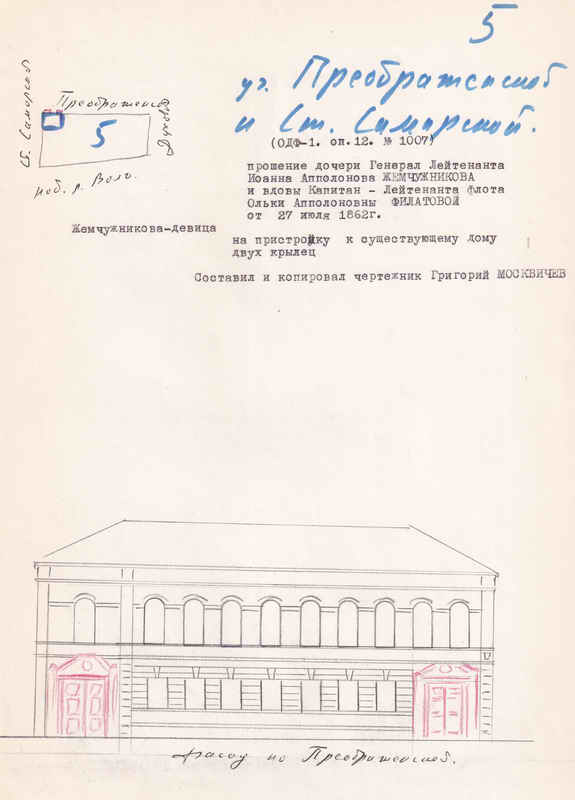 5
уг. Преображенской
и Ст. Самарской.
(ОДФ-1. оп.12. № 1007)
Преображенс
Ст. Самарской
5
Духовс
наб. р. Волг.
прошение дочери Генерал Лейтенанта
Иоанна Апполонова ЖЕМЧУЖНИКОВА
и вдовы Капитан - Лейтенанта флота
Ольки Апполоновны ФИЛАТОВОЙ
от 27 июля 1862г.
Жемчужникова-девица
на пристройку к существующему дому
двух крылец
Составил и копировал чертежник Григорий МОСКВИЧЕВ
фасад по Преображенской.